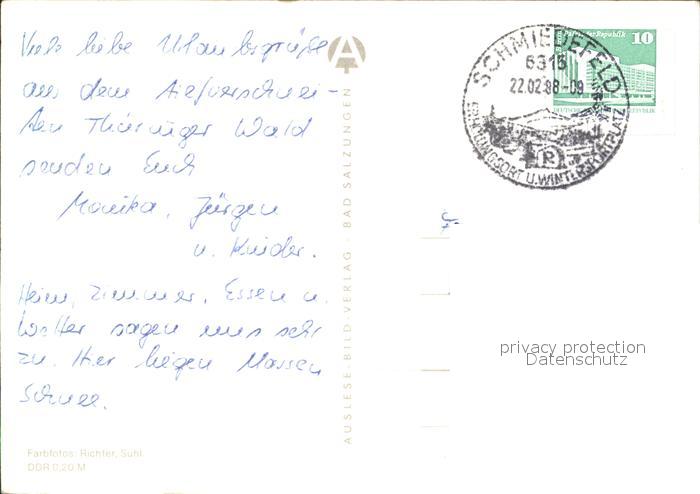 Viele liebe Urlaubsgrüße
aus dem tiefverschnei-
ten Thüringer Wald
senden Euch
Monika, Jürgen
u. Kinder.
Heim, Zimmer, Essen u.
Wetter sagen uns sehr
zu. Hier liegen Massen
Schnee.
Farbfotos: Richter, Suhl
DDR 0,20 M
AUSLESE-BILD-VERLAG · BAD SALZUNGEN
SCHMIEDEFELD
6316
22.02.88-09
ERHOLUNGSORT U. WINTERSPORTPLATZ
(R)
10
privacy protection
Datenschutz